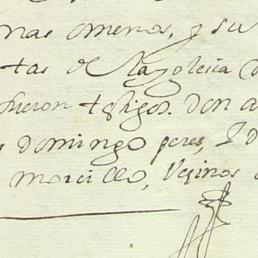 nas omenos, y su
tas de la yglesia d
fueron testigos. don a
domingo peres, I d
morcillo, Vezinos